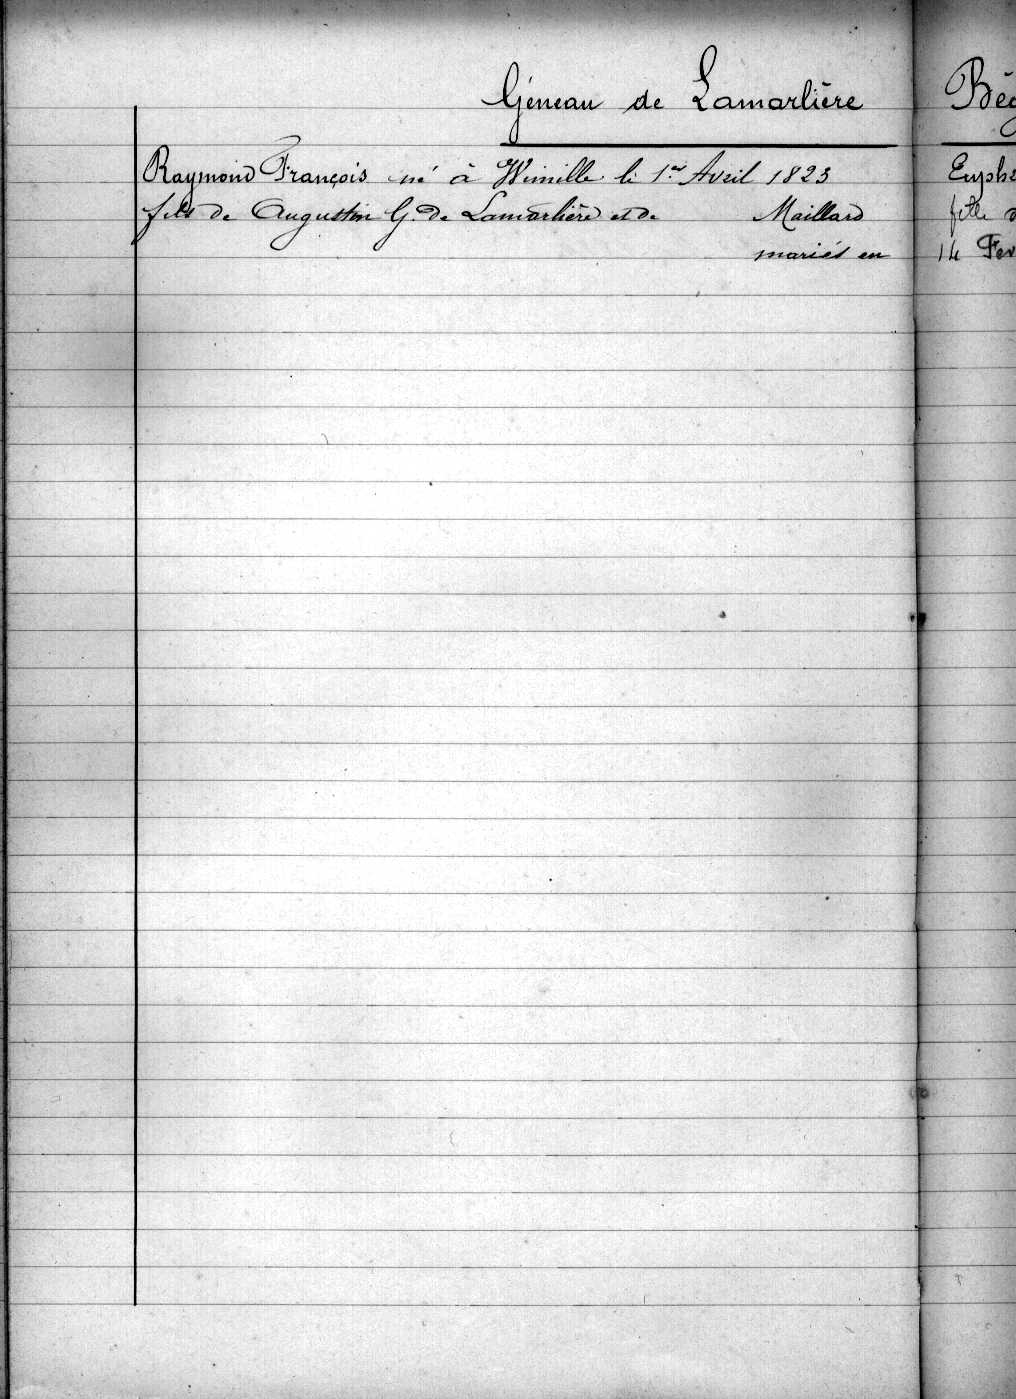 Géneau de Lamarlière
Raymond François né à Wimille le 1er Avril 1823
fils de Augustin G. de Lamarlière et de Maillard
mariés en
Bég
Euphe
fille d
14 Fev